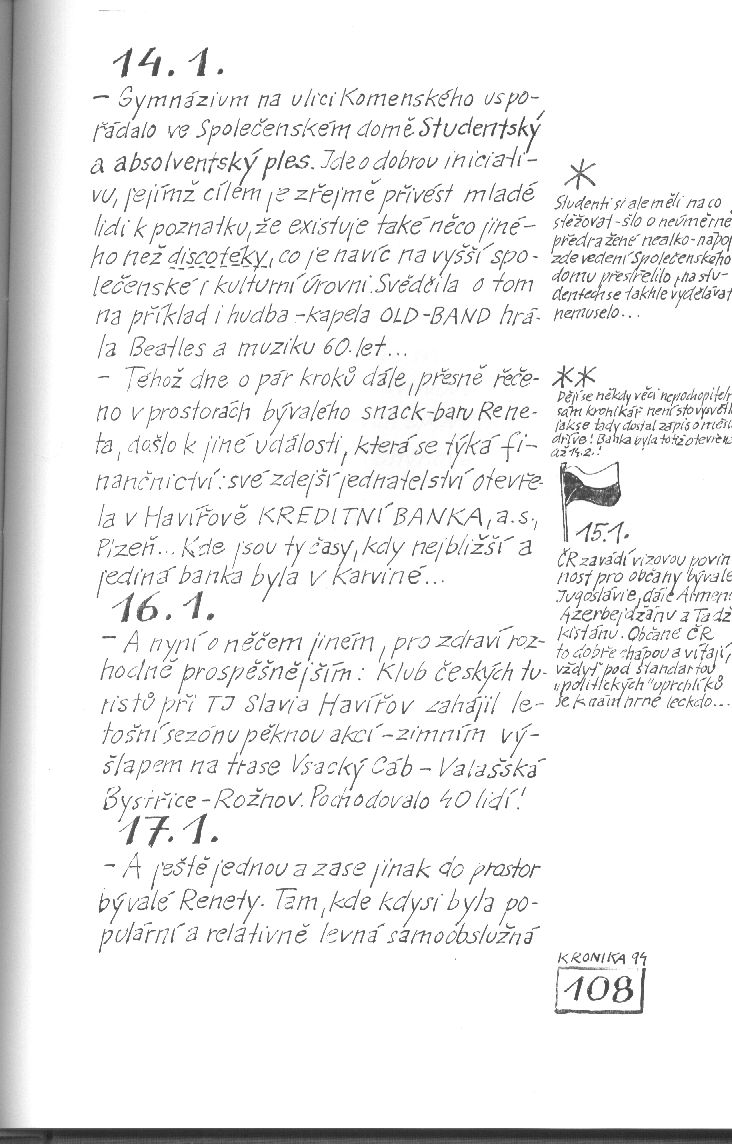 14. 1.
– Gymnázium na ulici Komenského uspo-
řádalo ve Společenském domě Studentský
a absolventský ples. Jde o dobrou iniciati-
vu, jejímž cílem je zřejmě přivést mladé
lidi k poznatku, že existuje také něco jiné-
ho než discotéky, co je navíc na vyšší spo-
lečenské i kulturní úrovni. Svědčila o tom
na příklad i hudba - kapela OLD-BAND hrá-
la Beatles a muziku 60. let...
– Téhož dne o pár kroků dále, přesně řeče-
no v prostorách bývalého snack-baru Rene-
ta, došlo k jiné události, která se týká fi-
nančnictví: své zdejší jednatelství otevře-
la v Havířově KREDITNÍ BANKA, a.s.,
Plzeň... Kde jsou ty časy, kdy nejbližší a
jediná banka byla v Karviné...
16. 1.
– A nyní o něčem jiném, pro zdraví roz-
hodně prospěšnějším: Klub českých tu-
ristů při TJ Slavia Havířov zahájil le-
tošní sezónu pěknou akcí – zimním vý-
šlapem na trase Vsacký Cáb – Valašská
Bystřice – Rožnov. Pochodovalo 40 lidí!
17. 1.
– A ještě jednou a zase jinak do prostor
bývalé Renety. Tam, kde kdysi byla po-
pulární a relativně levná samoobslužná
*
Studenti si ale měli na co
stěžovat - šlo o neúměrně
předražené nealko-nápoj
zde vedení Společenského
domu přestřelilo, na stu-
dentech se takhle vydělávat
nemuselo...
**
Dějí se někdy věci nepochopiteln
sám kronikář není s to vysvětli
jak se tady dostal zápis o měsí
dříve! Banka byla totiž otevřen
až 14.2.!
15. 1.
ČR zavádí vízovou povin
nost pro občany bývalé
Jugoslávie, dále Armén
Azerbejdžánu a Tadž
kistánu. Občané ČR
to dobře chápou a vítají,
vždyť pod standartou
„politických" uprchlíků
se k nám hrne leckdo...
KRONIKA 94
108